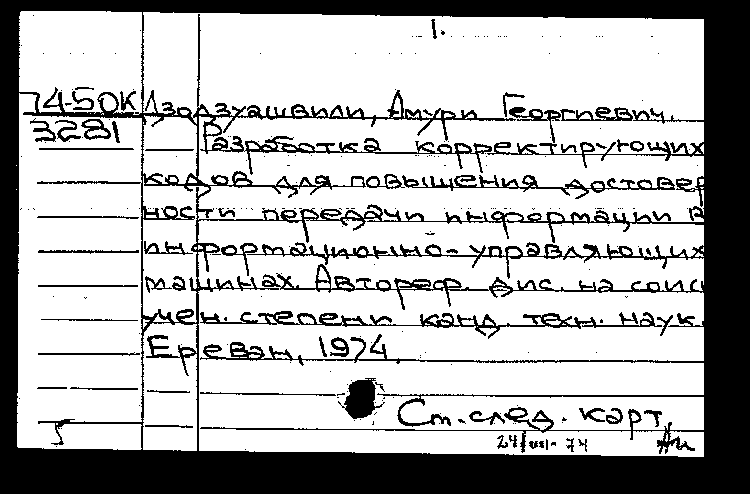 1.
74-50К Дзодзуашвили, Амури Георгиевич.
3281 Разработка корректирующих
кодов для повышения достовер
ности передачи информации в
информационно-управляющих
машинах. Автореф. дис. на соиск
учен. степени канд. техн. наук.
Ереван, 1974.
См. след. карт.
5 24/VIII-74